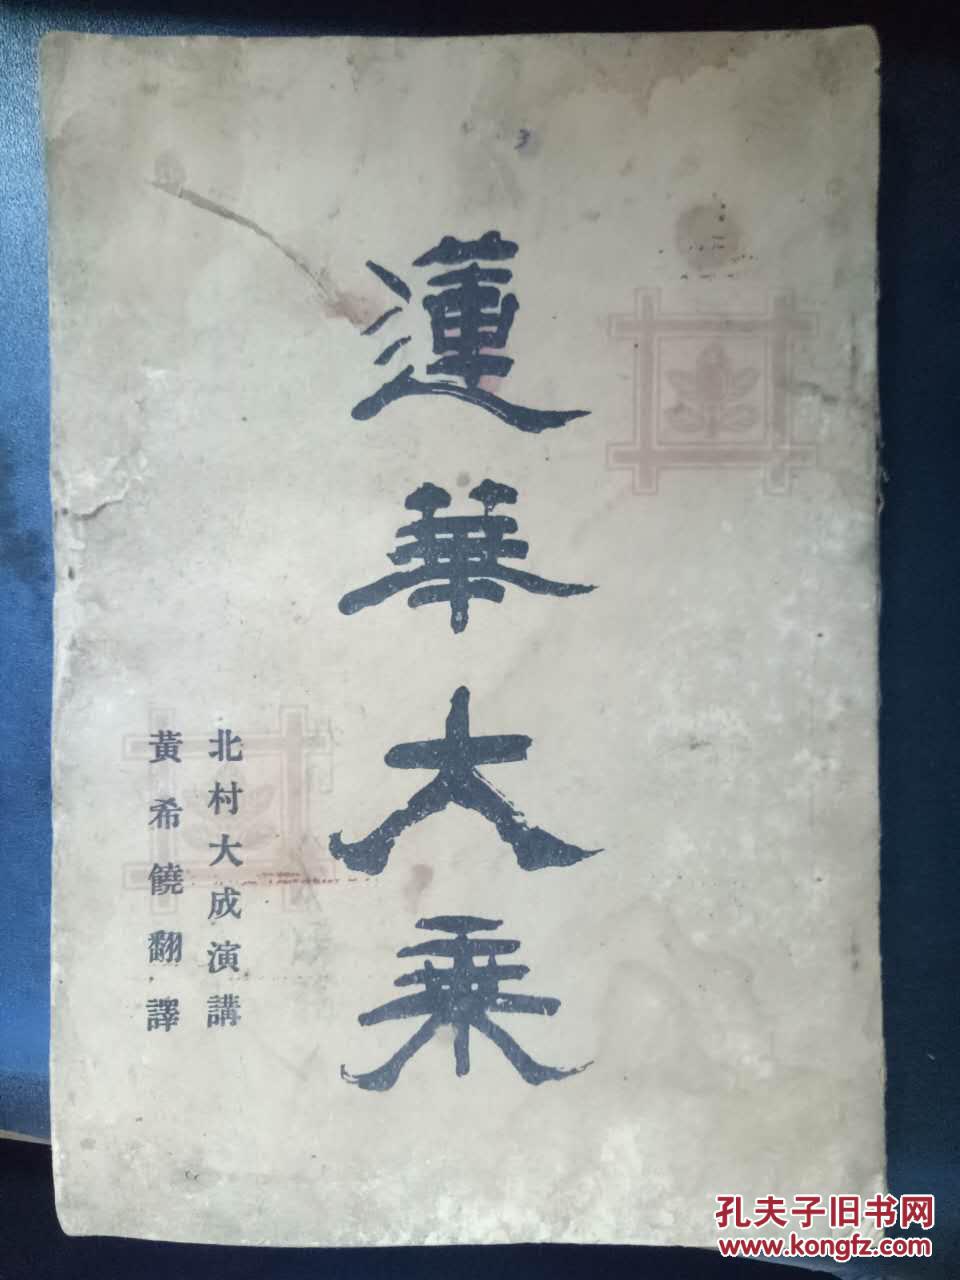 蓮華大乘
北村大成演講
黃希饒翻譯
3
孔夫子旧书网
www.kongfz.com